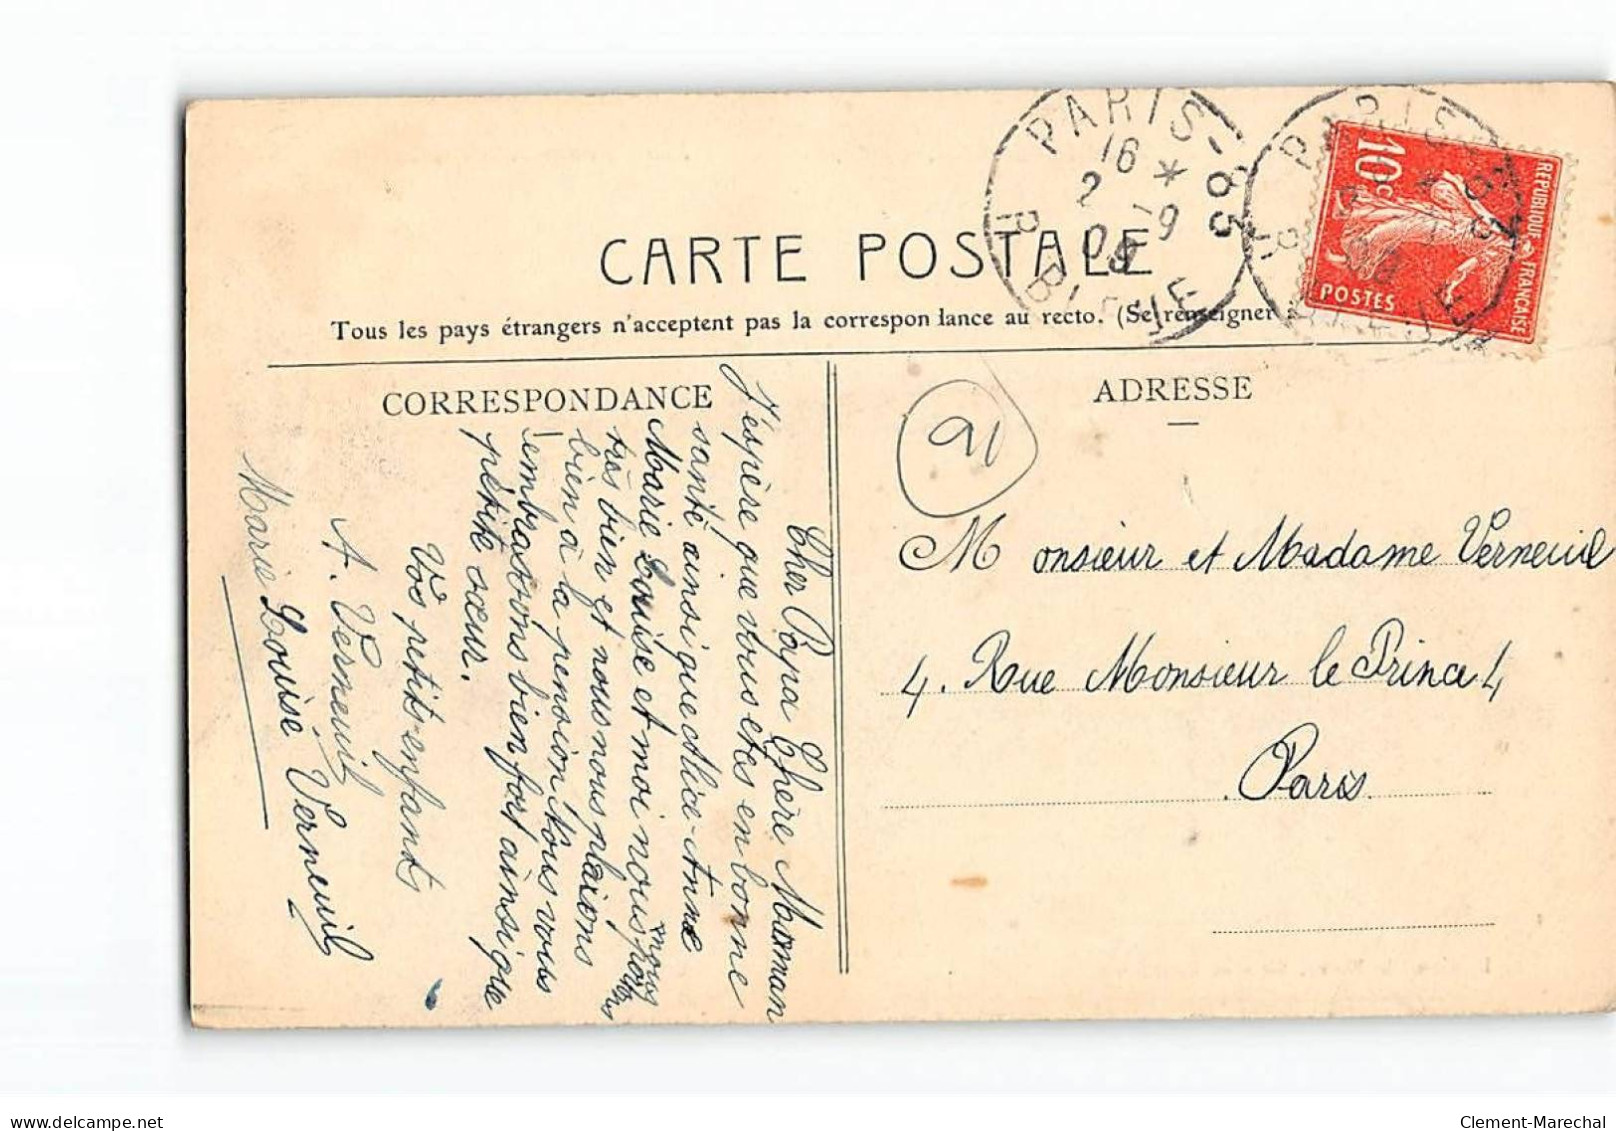 PARIS-83
16 *
2 -9
09
R. BLEUE
PARIS-83
10c
REPUBLIQUE FRANÇAISE
POSTES
CARTE POSTALE
Tous les pays étrangers n'acceptent pas la correspon lance au recto. (Se renseigner
CORRESPONDANCE
ADRESSE
21
Cher Papa Chère Maman
J'espère que vous etes en bonne
santé ainsi que Alice-Anne
Marie Louise et moi nous nous portons
très bien et nous nous plaisons
bien à la pension tous vous
embrassons bien fort ainsi que
petite sœur.
Vos petits enfants
A. Verneuil
Marie Louise Verneuil
Monsieur et Madame Verneuil
4. Rue Monsieur le Prince 4
Paris
delcampe.net
Clement-Marechal